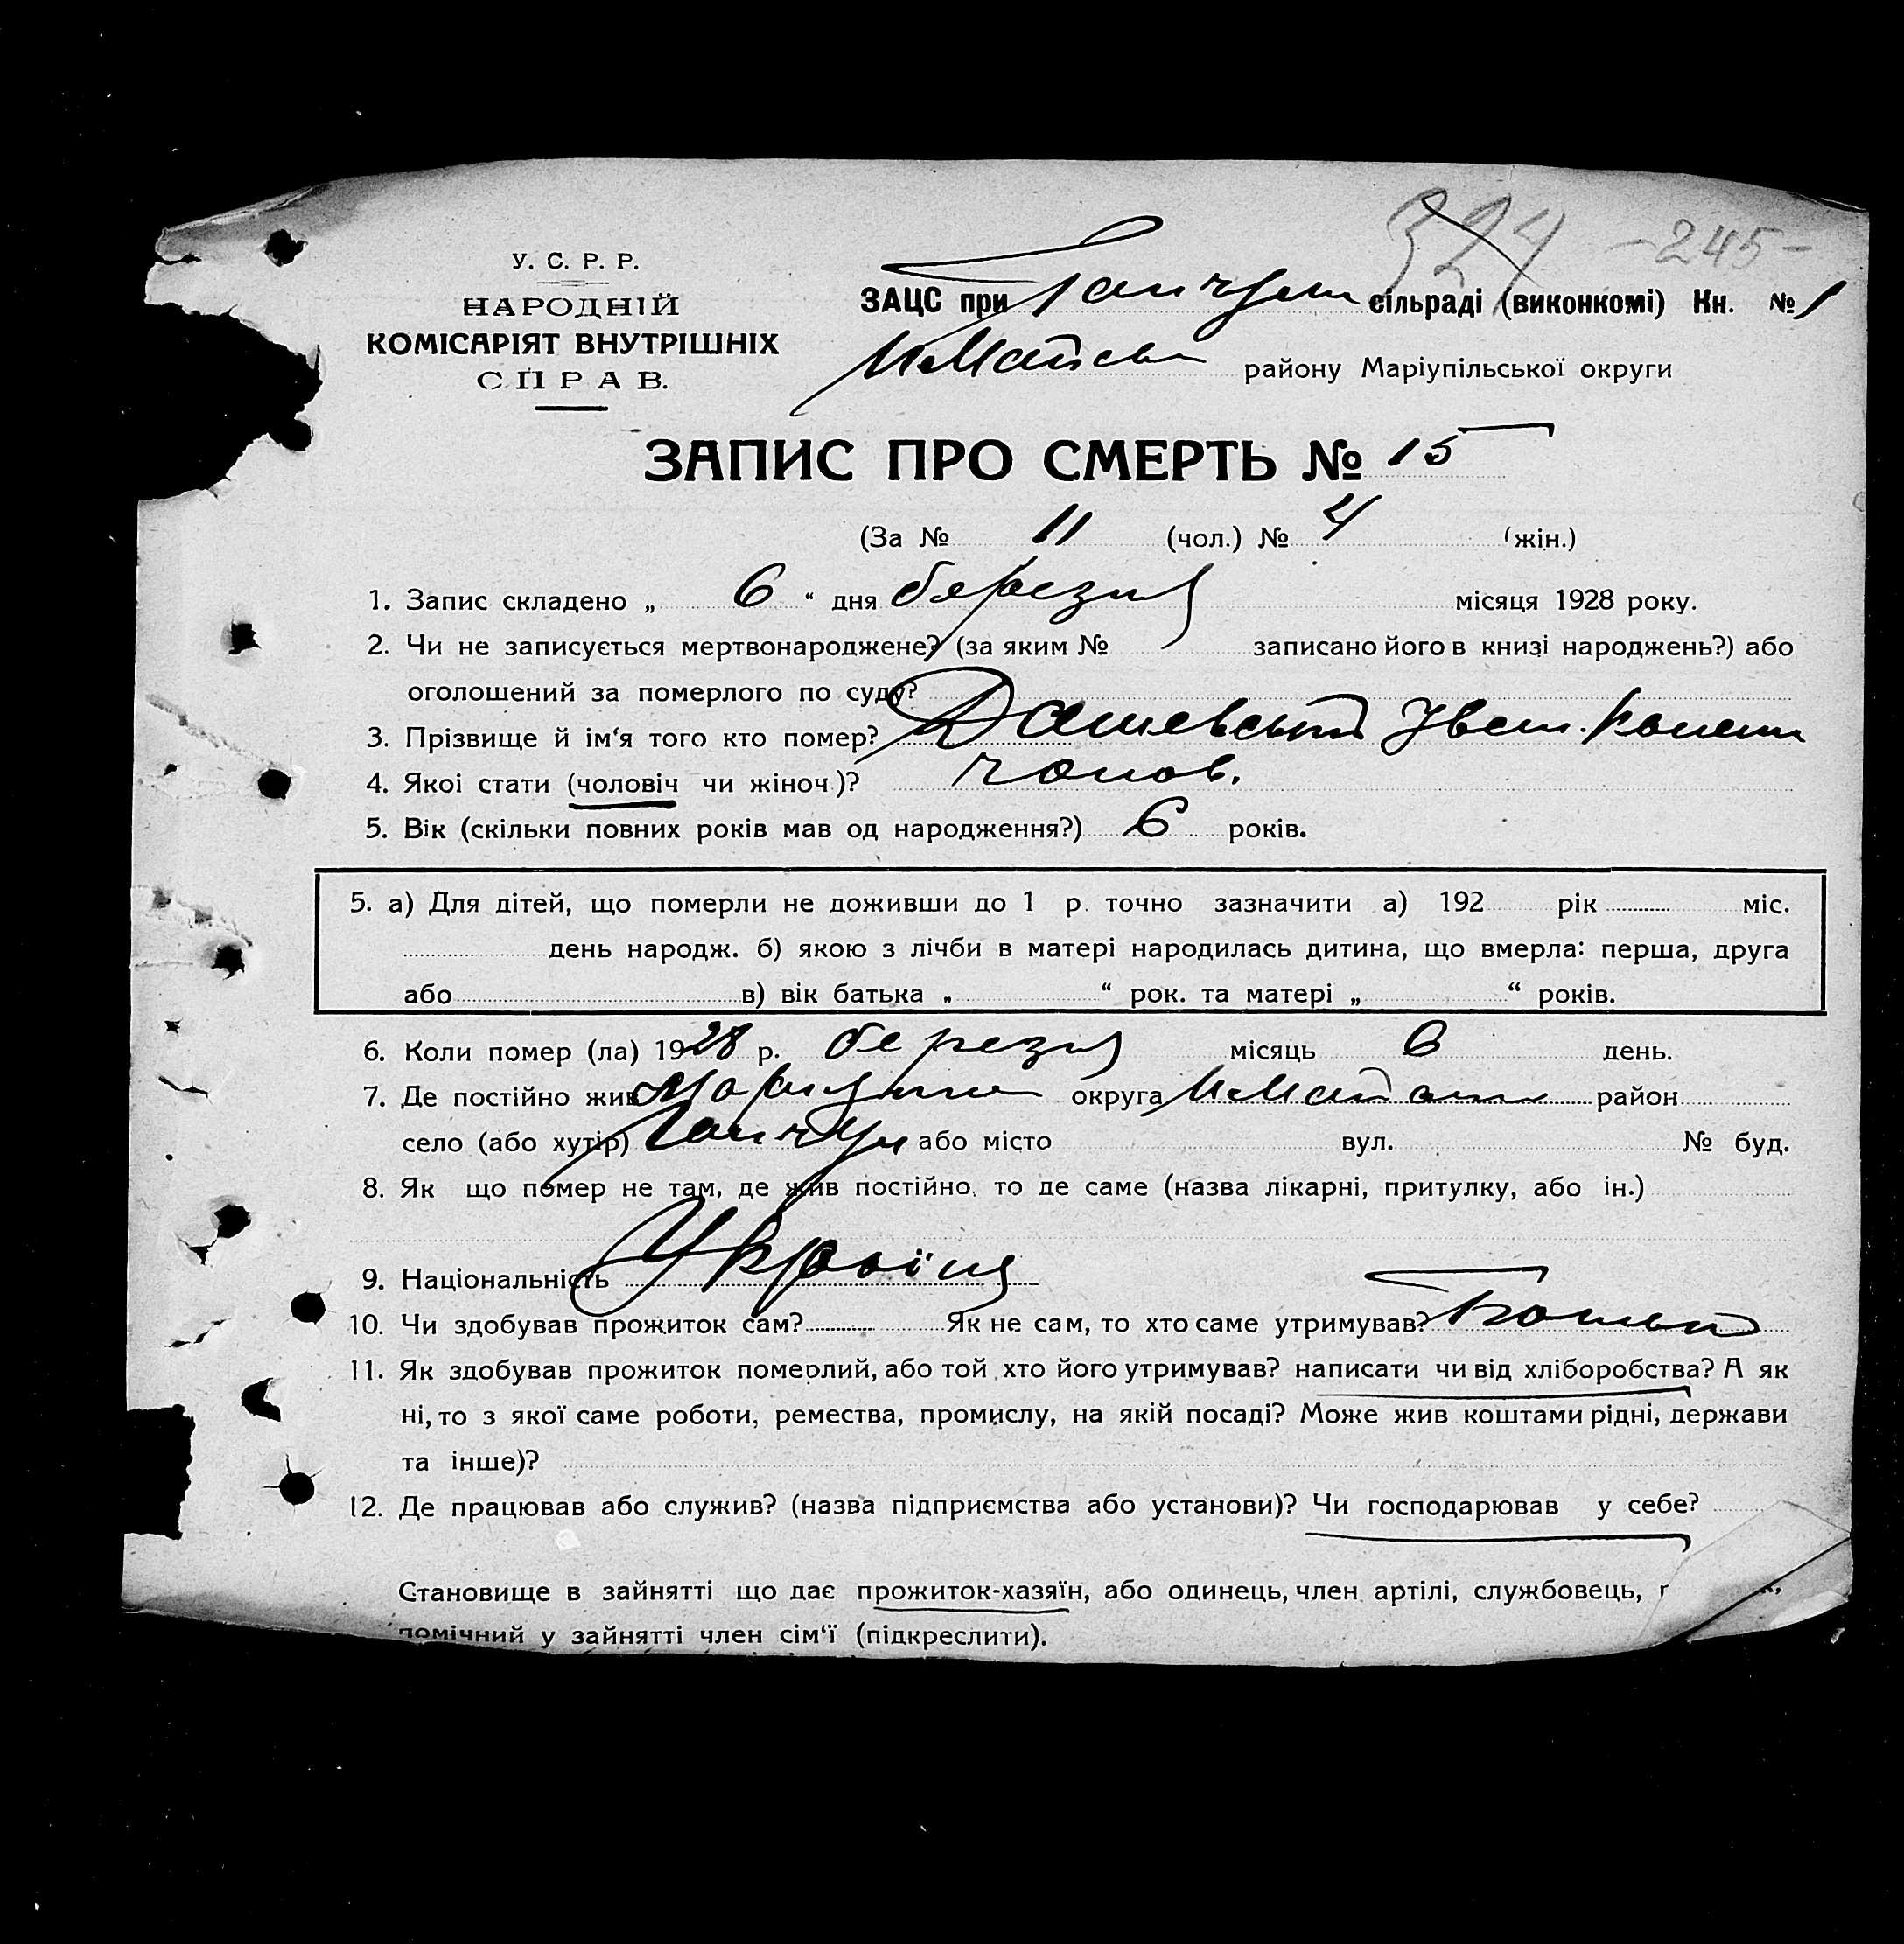 324 -245-
У. С. Р. Р.
НАРОДНІЙ
КОМІСАРІЯТ ВНУТРІШНІХ
СПРАВ.
ЗАЦС при сільраді (виконкомі) Кн. № 1
району Маріупільської округи
ЗАПИС ПРО СМЕРТЬ № 15
(За № 11 (чол.) № 4 (жін.)
1. Запис складено „ 6 “ дня березня місяця 1928 року.
2. Чи не записується мертвонароджене? (за яким № записано його в книзі народжень?) або
оголошений за померлого по суду?
3. Прізвище й ім‘я того кто помер? Дашевський Іван
4. Якої стати (чоловіч чи жіноч)? чолов.
5. Вік (скільки повних років мав од народження?) 6 років.
5. а) Для дітей, що померли не доживши до 1 р. точно зазначити а) 192 рік міс.
день народж. б) якою з лічби в матері народилась дитина, що вмерла: перша, друга
або в) вік батька „ “ рок. та матері „ “ років.
6. Коли помер (ла) 1928 р. березня місяць 6 день.
7. Де постійно жив округа район
село (або хутір) або місто вул. № буд.
8. Як що помер не там, де жив постійно, то де саме (назва лікарні, притулку, або ін.)
9. Національність Україн
10. Чи здобував прожиток сам? Як не сам, то хто саме утримував? Батько
11. Як здобував прожиток померлий, або той хто його утримував? написати чи від хліборобства? А як
ні, то з якої саме роботи, ремества, промислу, на якій посаді? Може жив коштами рідні, держави
та інше)?
12. Де працював або служив? (назва підприємства або установи)? Чи господарював у себе?
Становище в зайнятті що дає прожиток-хазяїн, або одинець, член артілі, службовець,
помічний у зайнятті член сім‘ї (підкреслити).